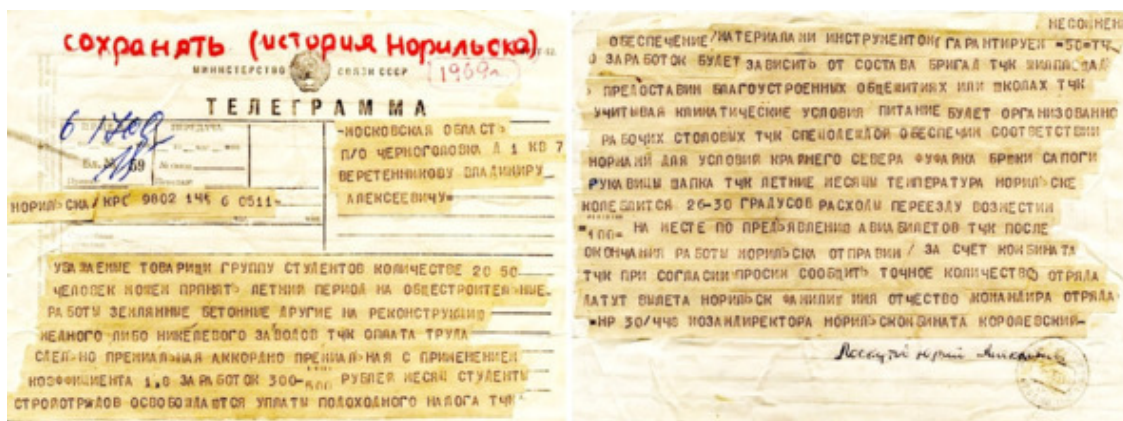 сохранять (история Норильска)
МИНИСТЕРСТВО СВЯЗИ СССР
1969г.
ТЕЛЕГРАММА
МОСКОВСКАЯ ОБЛАСТЬ
П/О ЧЕРНОГОЛОВКА Д 1 КВ 7
ВЕРЕТЕННИКОВУ ВЛАДИМИРУ
АЛЕКСЕЕВИЧУ=
НОРИЛЬСКА/КРС 9802 145 6 0511=
УВАЖАЕМЫЕ ТОВАРИЩИ ГРУППУ СТУДЕНТОВ КОЛИЧЕСТВЕ 20 50
ЧЕЛОВЕК МОЖЕМ ПРИНЯТЬ ЛЕТНИЙ ПЕРИОД НА ОБЩЕСТРОИТЕЛЬНЫЕ
РАБОТЫ ЗЕМЛЯНЫЕ БЕТОННЫЕ ДРУГИЕ НА РЕКОНСТРУКЦИЮ
МЕДНОГО ЛИБО НИКЕЛЕВОГО ЗАВОДОВ ТЧК ОПЛАТА ТРУДА
СДЕЛЬНО ПРЕМИАЛЬНАЯ АККОРДНО ПРЕМИАЛЬНАЯ С ПРИМЕНЕНИЕМ
КОЭФФИЦИЕНТА 1,8 ЗАРАБОТОК 300- РУБЛЕЙ МЕСЯЦ СТУДЕНТЫ
СТРОЙОТРЯДОВ ОСВОБОЖДАЮТСЯ УПЛАТЫ ПОДОХОДНОГО НАЛОГА ТЧК
ОБЕСПЕЧЕНИЕ/МАТЕРИАЛАМИ ИНСТРУМЕНТОМ ГАРАНТИРУЕМ =50=ТЧК
ЗАРАБОТОК БУДЕТ ЗАВИСИТЬ ОТ СОСТАВА БРИГАД ТЧК
ПРЕДОСТАВИМ БЛАГОУСТРОЕННЫХ ОБЩЕЖИТИЯХ ИЛИ ШКОЛАХ ТЧК
УЧИТЫВАЯ КЛИМАТИЧЕСКИЕ УСЛОВИЯ ПИТАНИЕ БУДЕТ ОРГАНИЗОВАННО
РАБОЧИХ СТОЛОВЫХ ТЧК СПЕЦОДЕЖДОЙ ОБЕСПЕЧИМ СООТВЕТСТВИИ
НОРМАМИ ДЛЯ УСЛОВИЙ КРАЙНЕГО СЕВЕРА ФУФАЙКА БРЮКИ САПОГИ
РУКАВИЦЫ ШАПКА ТЧК ЛЕТНИЕ МЕСЯЦЫ ТЕМПЕРАТУРА НОРИЛЬСКЕ
КОЛЕБЛИТСЯ 26-30 ГРАДУСОВ РАСХОДЫ ПЕРЕЕЗДУ ВОЗМЕСТИМ
=100= НА МЕСТЕ ПО ПРЕДЪЯВЛЕНИЮ АВИАБИЛЕТОВ ТЧК ПОСЛЕ
ОКОНЧАНИЯ РАБОТЫ НОРИЛЬСКА ОТПРАВИМ/ ЗА СЧЕТ КОМБИНАТА
ТЧК ПРИ СОГЛАСИИ ПРОСИМ СООБЩИТЬ ТОЧНОЕ КОЛИЧЕСТВО ОТРЯДА
ДАТУТ ВЫЛЕТА НОРИЛЬСК ФАМИЛИЮ ИМЯ ОТЧЕСТВО КОМАНДИРА ОТРЯДА
=НР 30/448 ИОЗАМДИРЕКТОРА НОРИЛЬСКОМБИНАТА КОРОЛЕВСКИЙ-